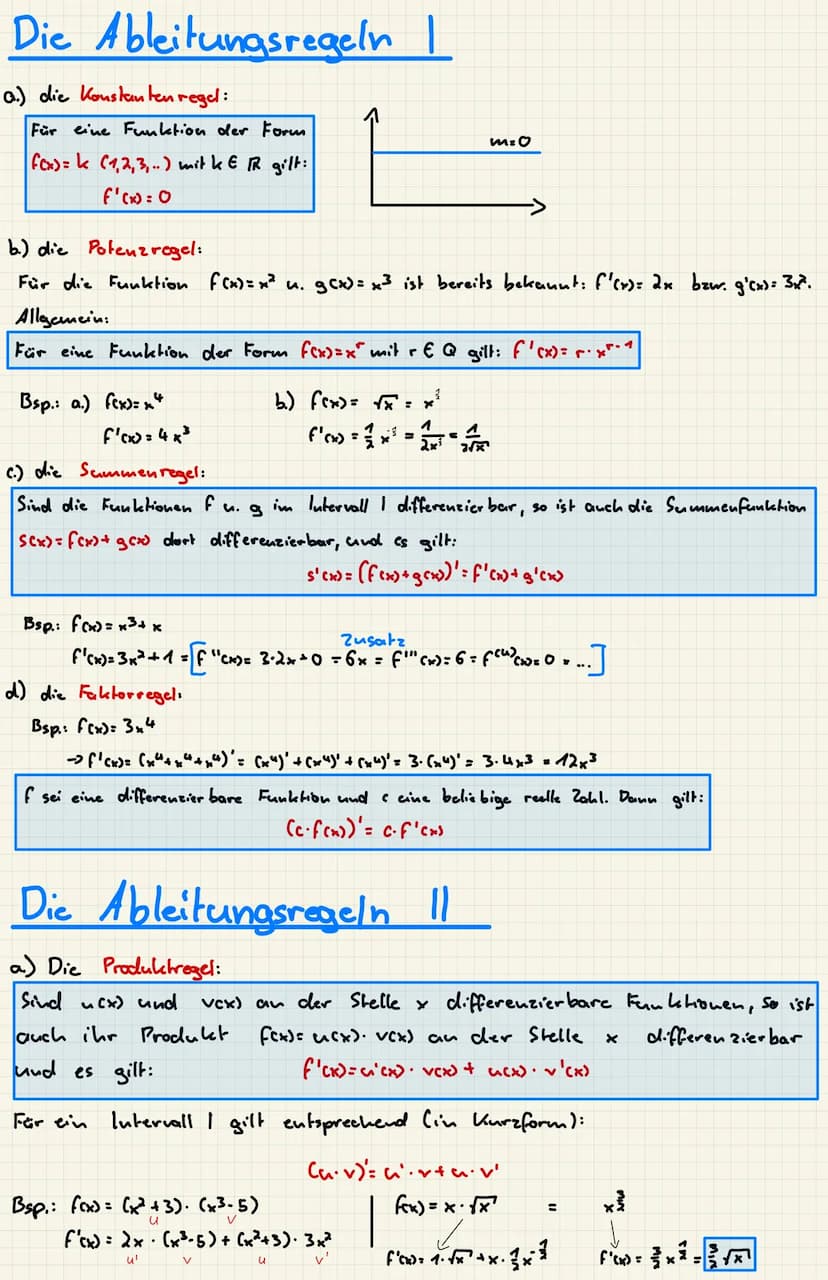 Die Ableitungsregeln I
a.) die Konstantenregel:
Für eine Funktion der Form
f(x)= k (1,2,3,..) mit k ∈ ℝ gilt:
f'(x)= 0
m=0
b.) die Potenzregel:
Für die Funktion f(x)= x² u. g(x)= x³ ist bereits bekannt: f'(x)= 2x bzw. g'(x)= 3x².
Allgemein:
Für eine Funktion der Form f(x)=x^r mit r ∈ Q gilt: f'(x)= r· x^(r-1)
Bsp.: a.) f(x)= x⁴ b.) f(x)= √x =
f'(x)= 4x³ f'(x) = = 1/(2√x)
c.) die Summenregel:
Sind die Funktionen f u. g im Intervall I differenzierbar, so ist auch die Summenfunktion
s(x)= f(x)+ g(x) dort differenzierbar, und es gilt:
s'(x)= (f(x)+g(x))'= f'(x)+g'(x)
Bsp.: f(x)= x³+ x
Zusatz
f'(x)= 3x²+1 = [f''(x)= 3·2x+0 = 6x = f'''(x)= 6 = f⁽⁴⁾(x)= 0 = ...]
d) die Faktorregel:
Bsp.: f(x)= 3x⁴
→ f'(x)= (x⁴+x⁴+x⁴)'= (x⁴)'+(x⁴)'+(x⁴)'= 3·(x⁴)'= 3·4x³ = 12x³
f sei eine differenzierbare Funktion und c eine beliebige reelle Zahl. Dann gilt:
(c·f(x))'= c·f'(x)
Die Ableitungsregeln II
a) Die Produktregel:
Sind u(x) und v(x) an der Stelle x differenzierbare Funktionen, so ist
auch ihr Produkt f(x)= u(x)· v(x) an der Stelle x differenzierbar
und es gilt: f'(x)= u'(x)· v(x)+ u(x)· v'(x)
Für ein Intervall I gilt entsprechend (in Kurzform):
(u·v)'= u'·v+u·v'
Bsp.: f(x)= (x²+3)·(x³-5) f(x)= x·√x = x^(3/2)
u v
f'(x)= 2x·(x³-5)+(x²+3)·3x² f'(x)= 1·√x+x·½x^(-1/2) f'(x)= 3/2 x^(1/2) = 3/2 √x
u' v u v'